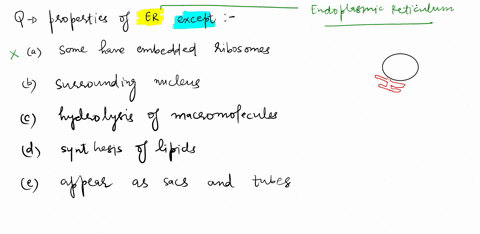 Endoplasmic Reticulum
Q→ properties of ER except :-
x (a) Some have embedded ribosomes
(b) surrounding nucleus
(c) hydrolysis of macromolecules
(d) synthesis of lipids
(e) appear as sacs and tubes